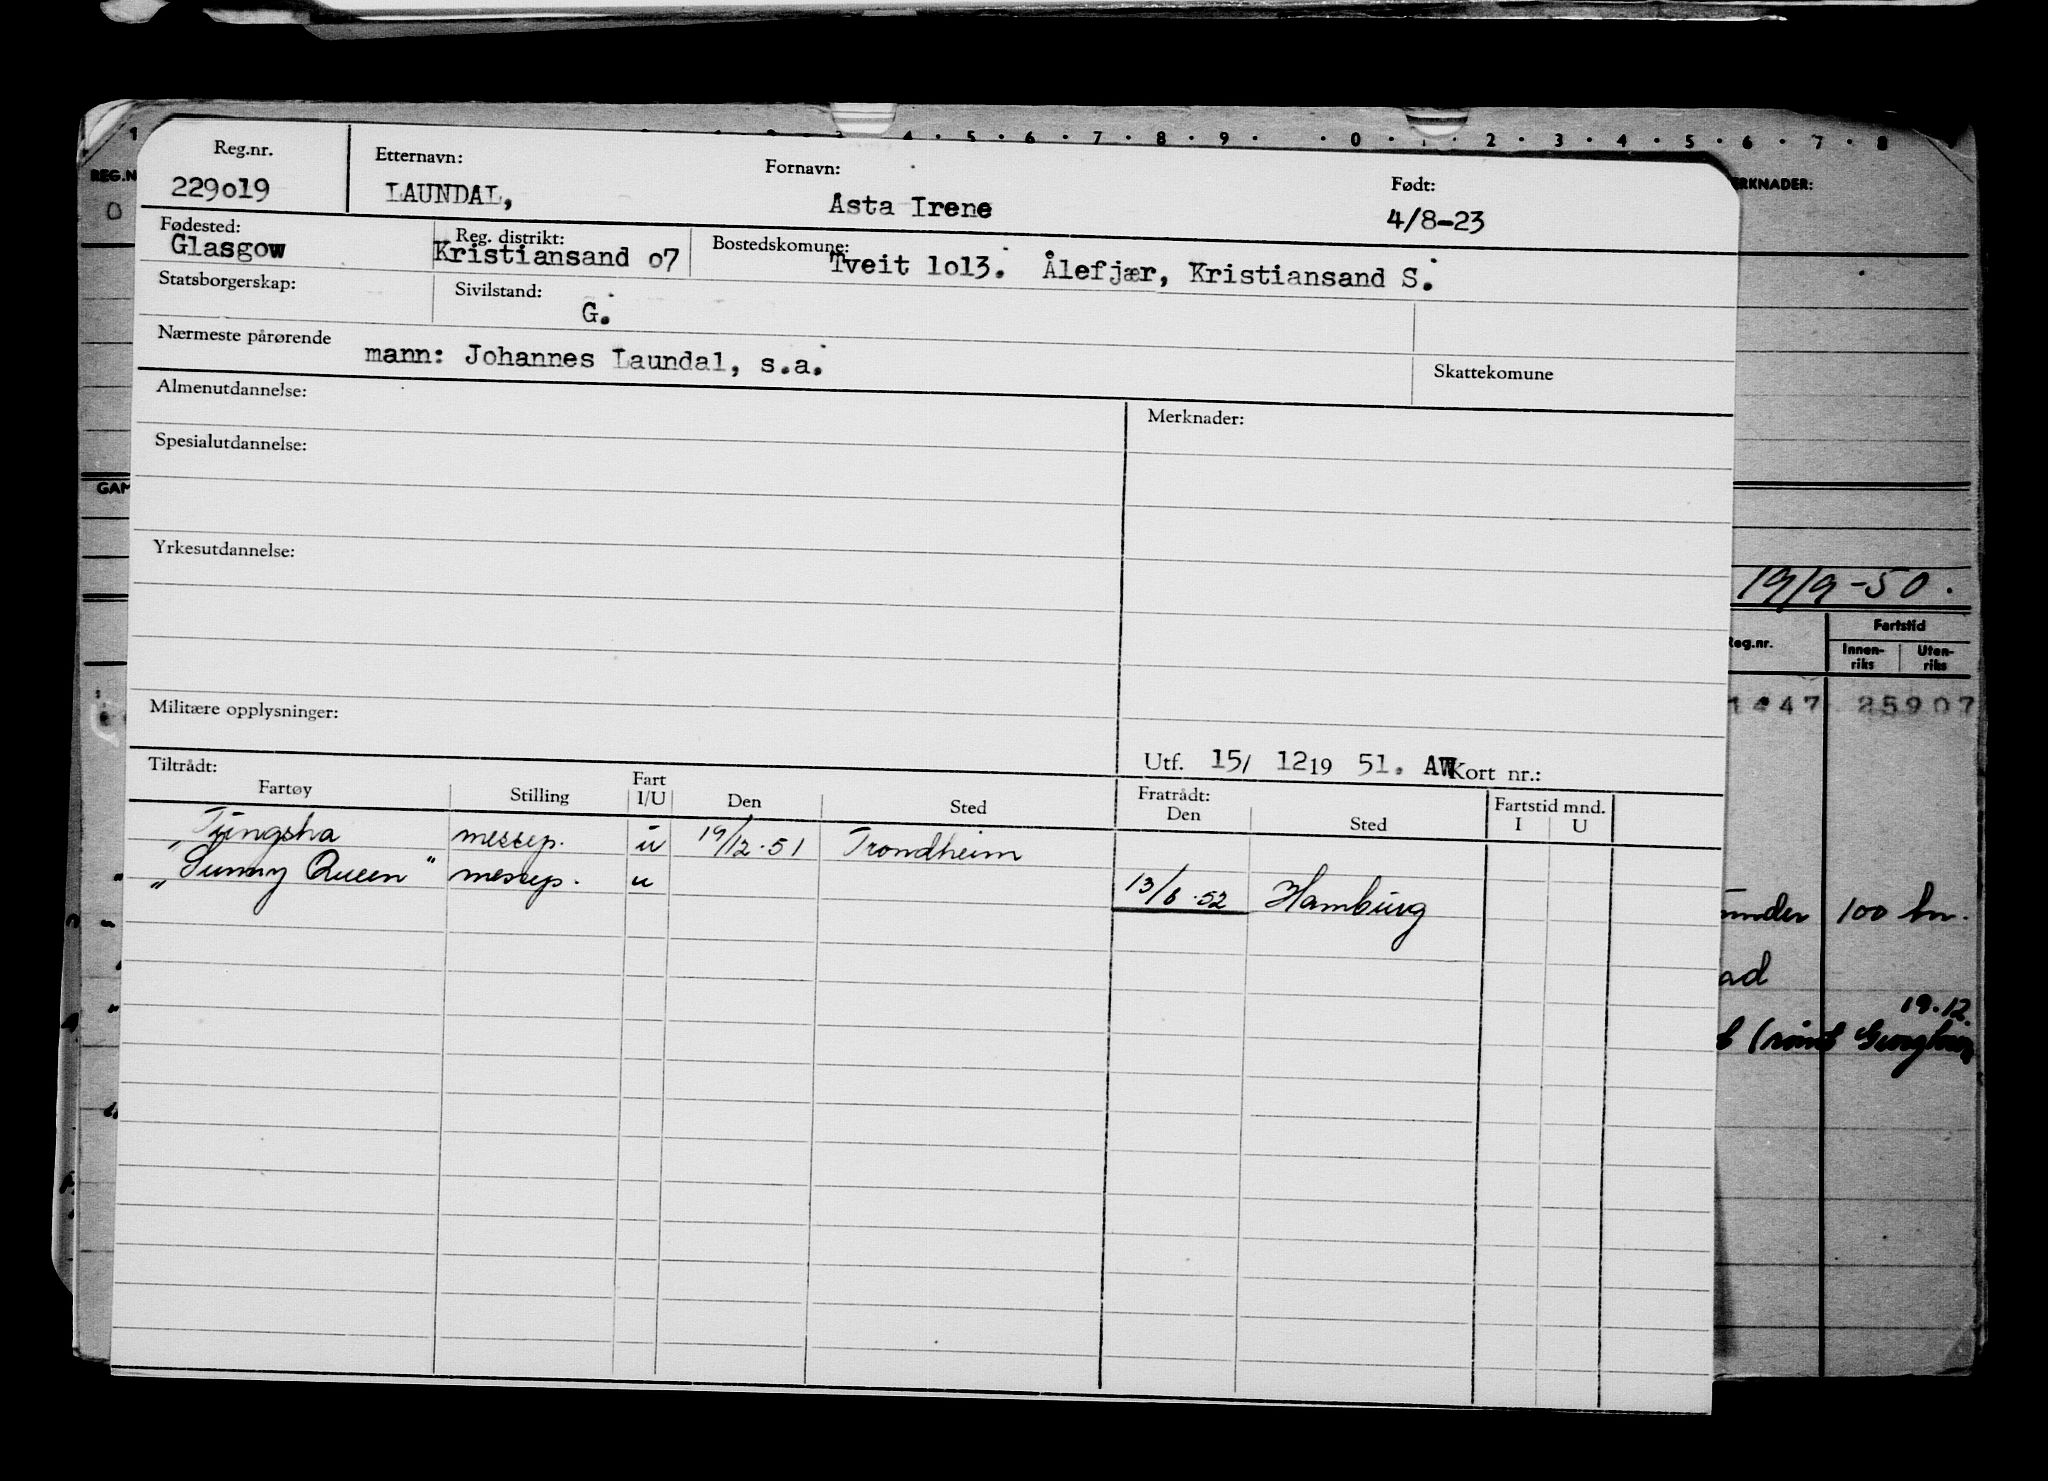 1 3 4 . 5 . 6 . 7 . 8 . 9 . . 0 . 1 . 2 . 3 . 4 . 5 . 6 . 7 . 8
REG.N
ERKNADER:
0
Reg.nr. Etternavn: Fornavn: Født:
229o19 LAUNDAL, Asta Irene 4/8-23
Fødested: Reg. distrikt: Bostedskomune:
Glasgow Kristiansand o7 Tveit 1o13. Ålefjær, Kristiansand S.
Statsborgerskap: Sivilstand:
G.
Nærmeste pårørende
mann: Johannes Laundal, s.a.
Skattekomune
Almenutdannelse: Merknader:
Spesialutdannelse:
GAM
Yrkesutdannelse:
19/9-50.
Reg.nr. Fartstid
Innen-riks Uten-riks
1447 25907
Militære opplysninger:
Utf. 15/ 12 19 51. AW Kort nr.:
Tiltrådt: Fratrådt: Fartstid mnd.
Fartøy Stilling Fart I/U Den Sted Den Sted I U
Tungsha messep. u 19/12.51 Trondheim
"Sunny Queen" messep. u 13/6.52 Hamburg
100 kr.
ad
19.12.